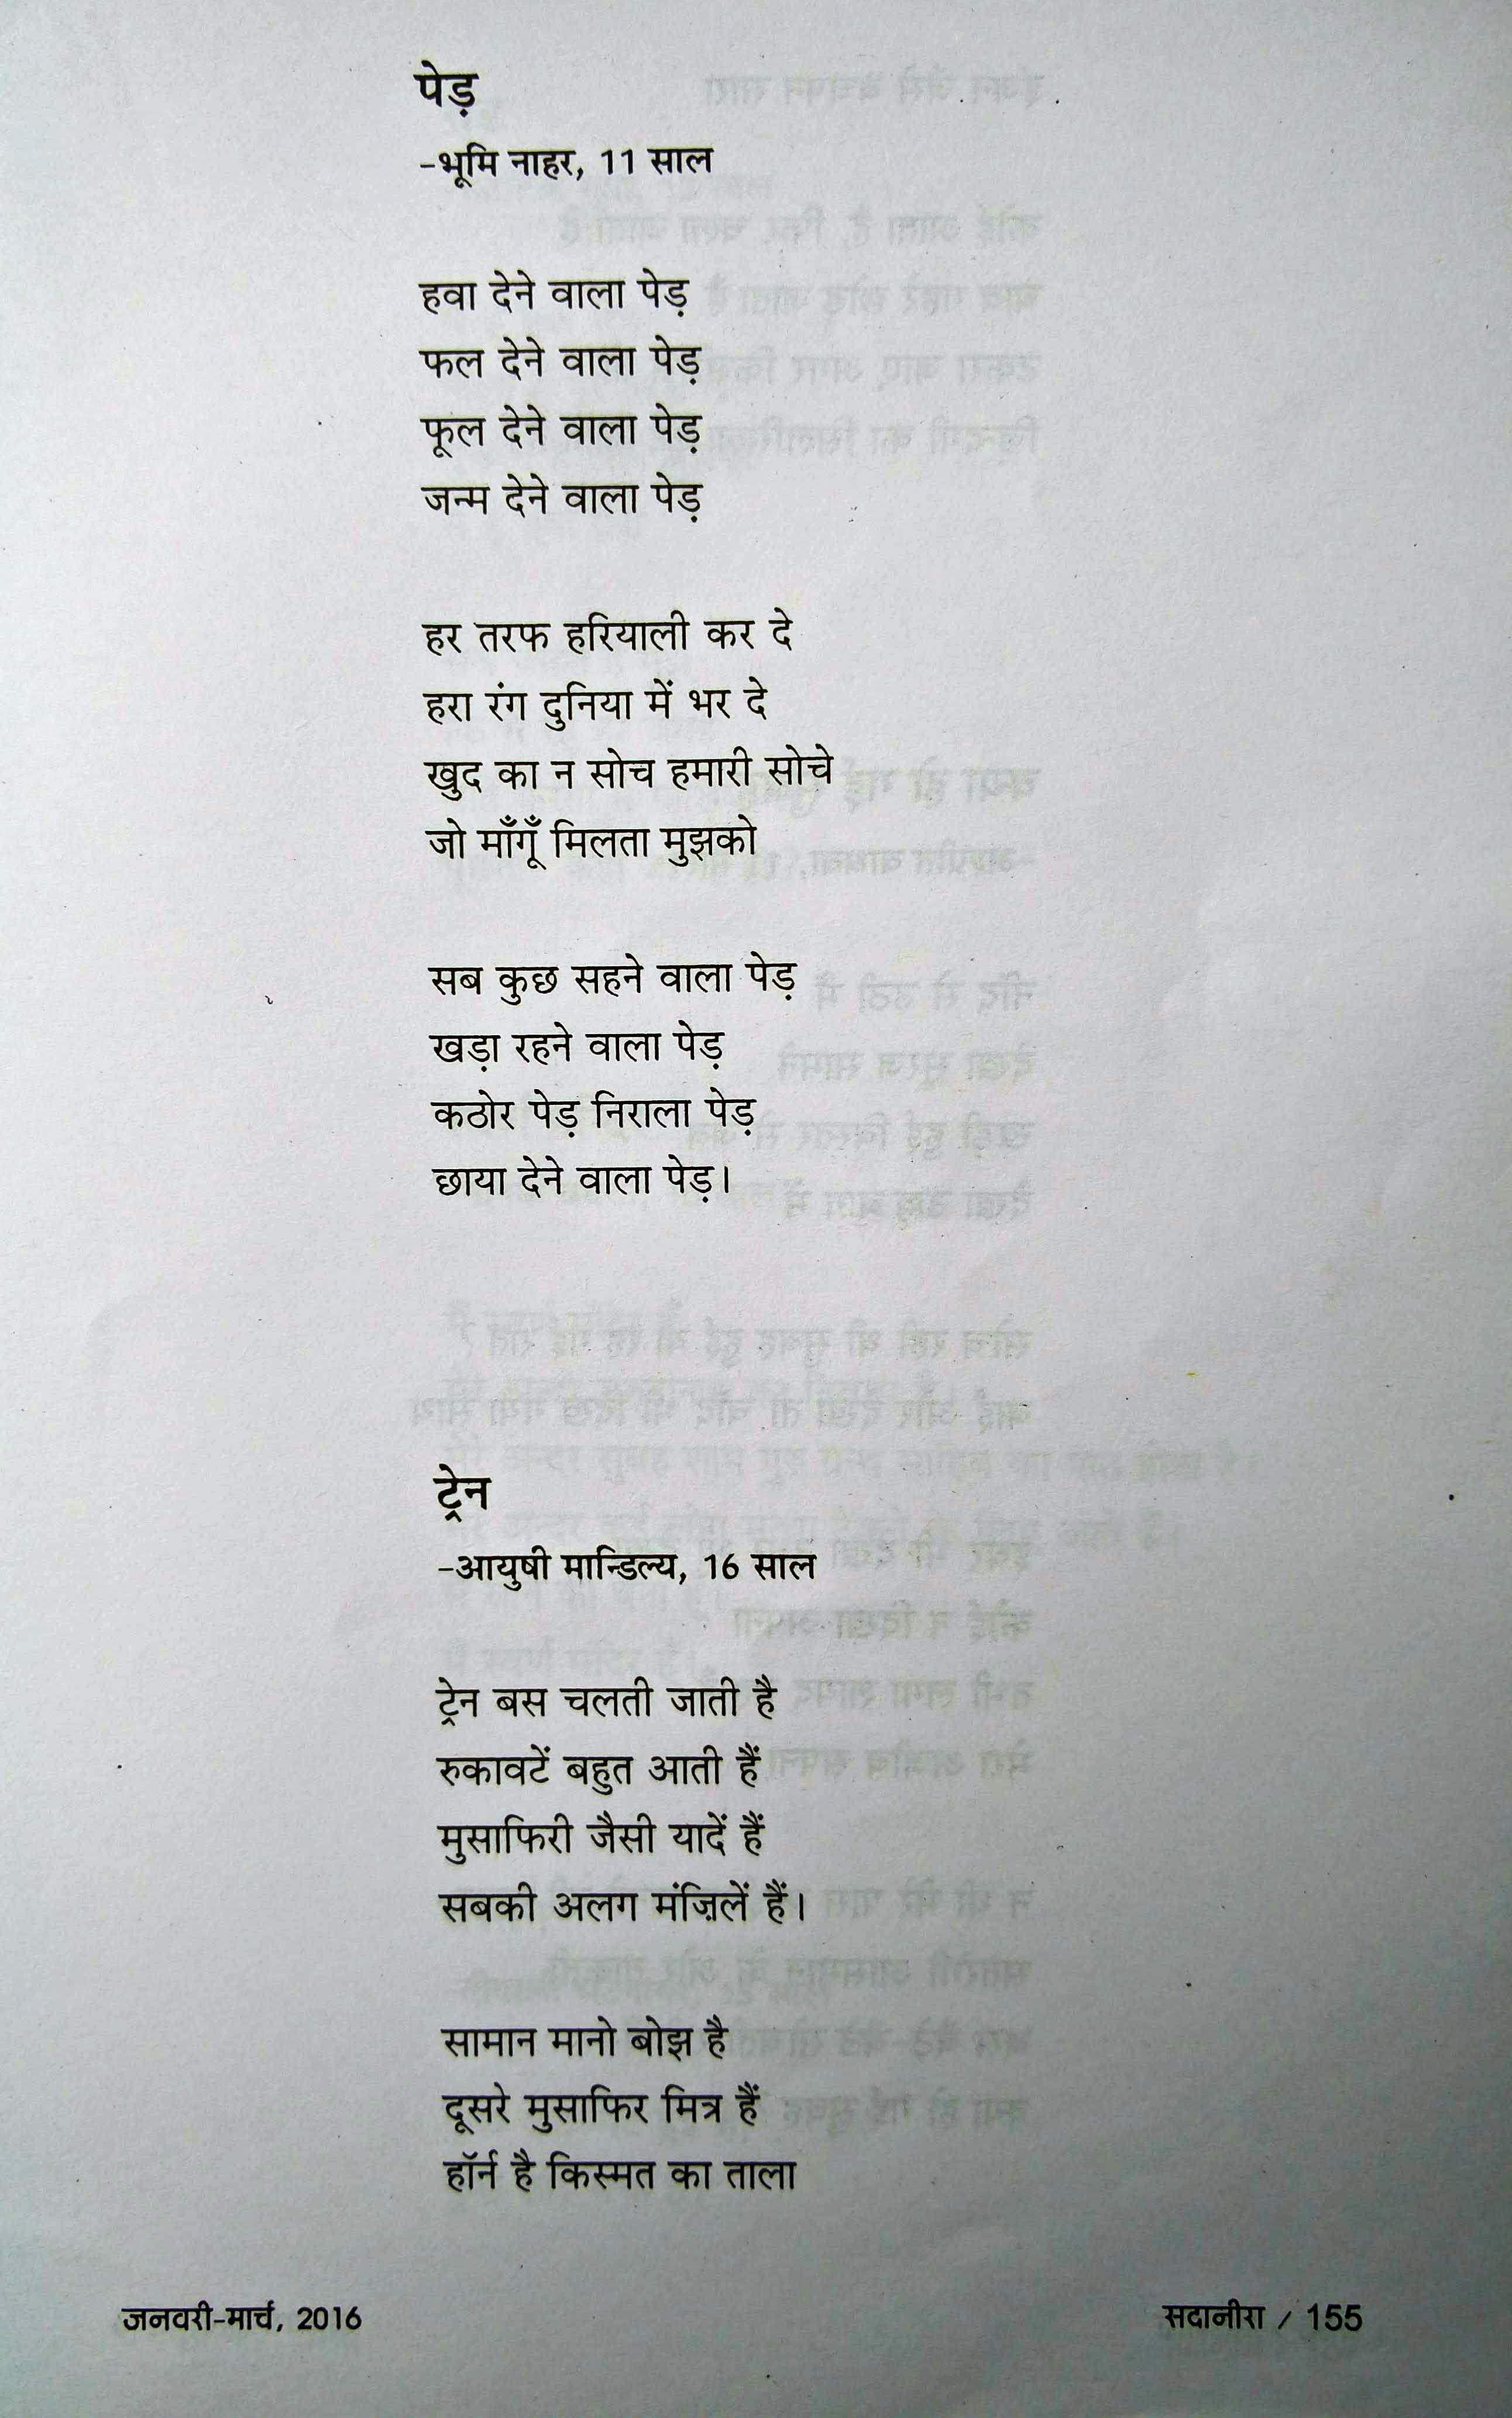 पेड़
-भूमि नाहर, 11 साल
हवा देने वाला पेड़
फल देने वाला पेड़
फूल देने वाला पेड़
जन्म देने वाला पेड़
हर तरफ हरियाली कर दे
हरा रंग दुनिया में भर दे
खुद का न सोच हमारी सोचे
जो माँगूँ मिलता मुझको
सब कुछ सहने वाला पेड़
खड़ा रहने वाला पेड़
कठोर पेड़ निराला पेड़
छाया देने वाला पेड़।
ट्रेन
-आयुषी मान्डिल्य, 16 साल
ट्रेन बस चलती जाती है
रुकावटें बहुत आती हैं
मुसाफिरी जैसी यादें हैं
सबकी अलग मंज़िलें हैं।
सामान मानो बोझ है
दूसरे मुसाफिर मित्र हैं
हॉर्न है किस्मत का ताला
जनवरी-मार्च, 2016
सदानीरा / 155